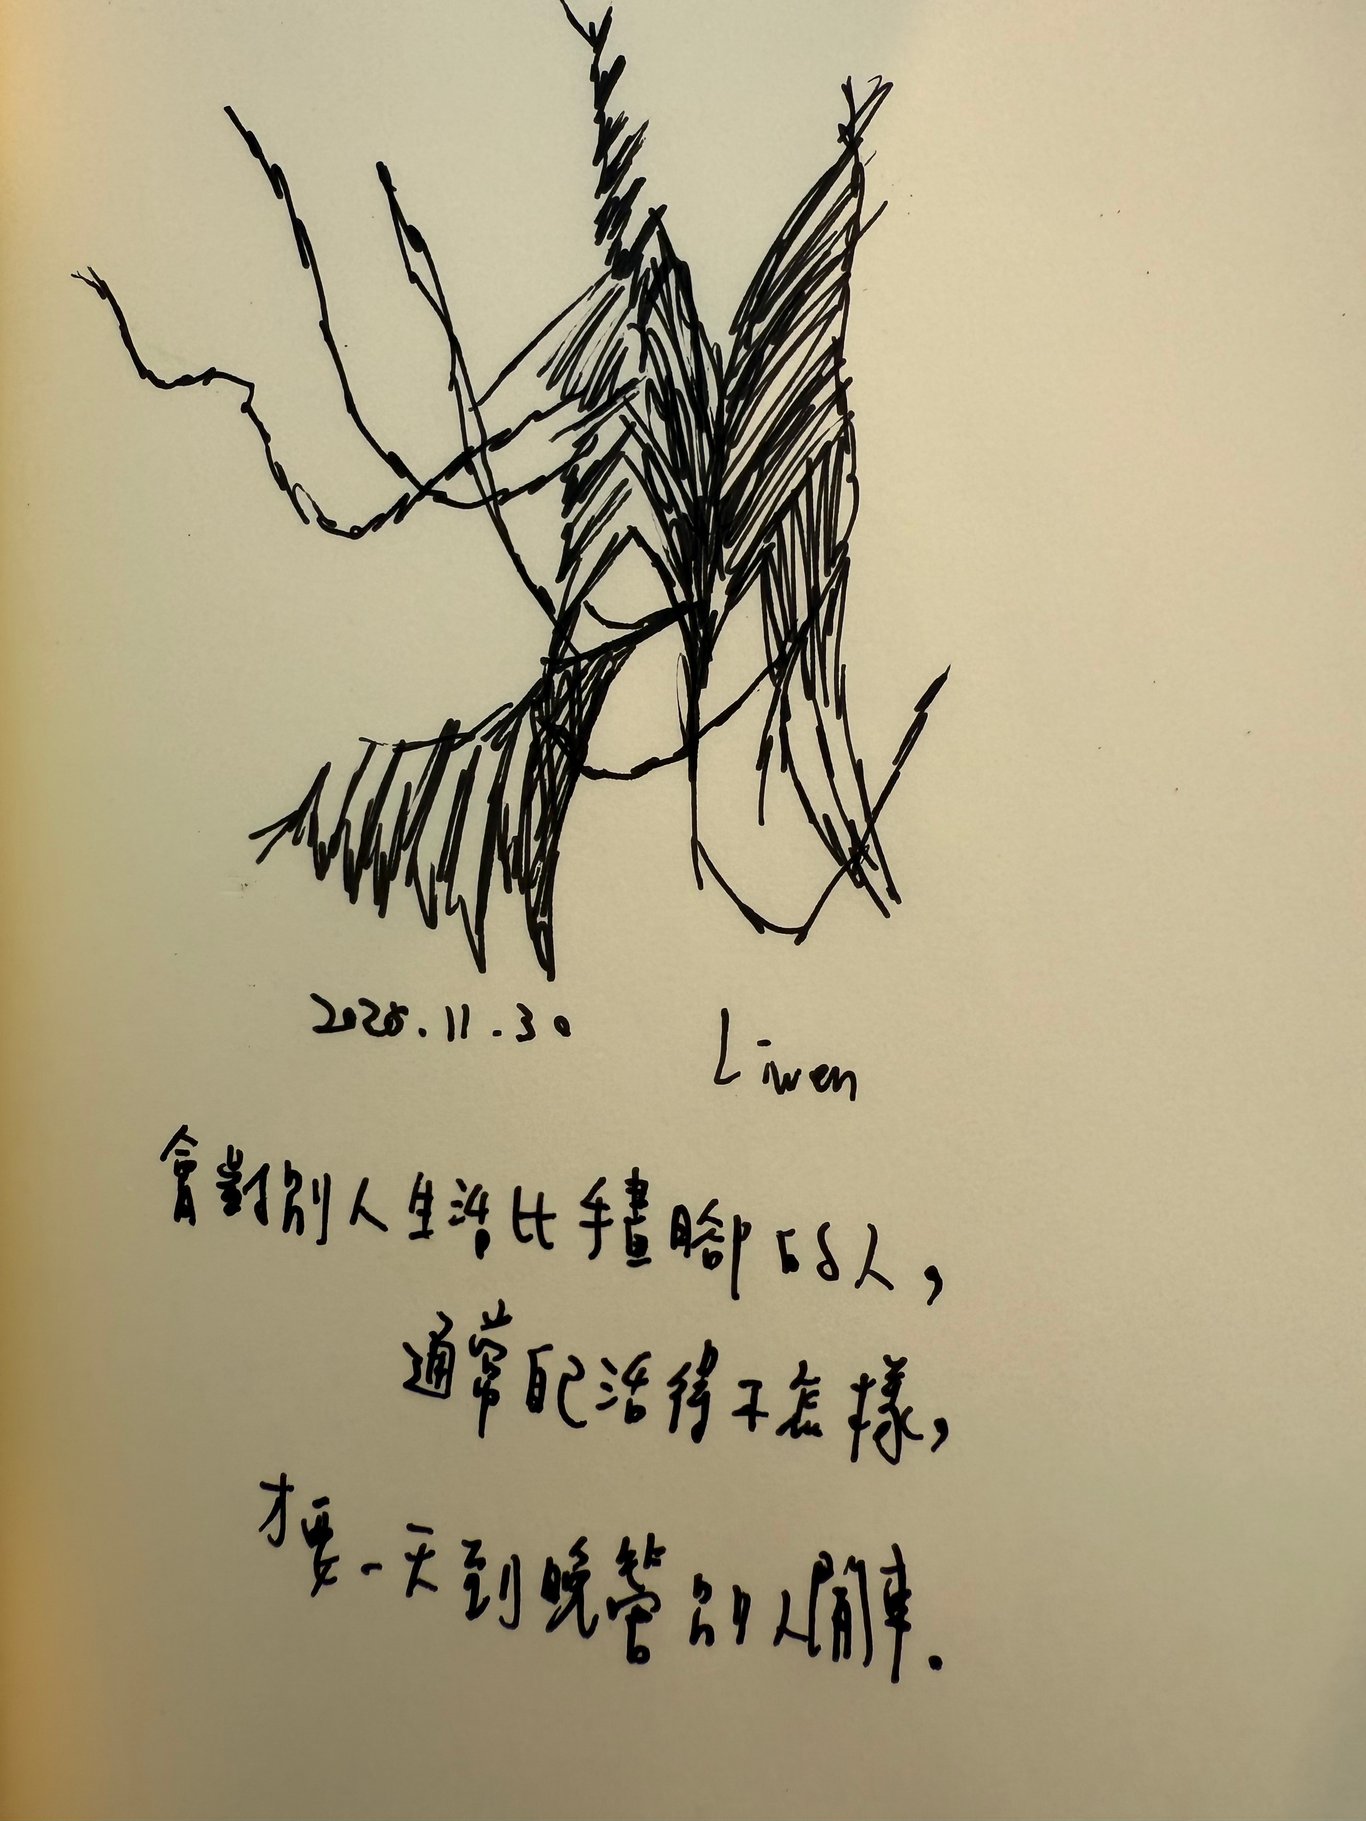 2025.11.30
Liwen
會對別人生活比手畫腳的人，
通常自己活得不怎樣，
才要一天到晚管別人閒事.